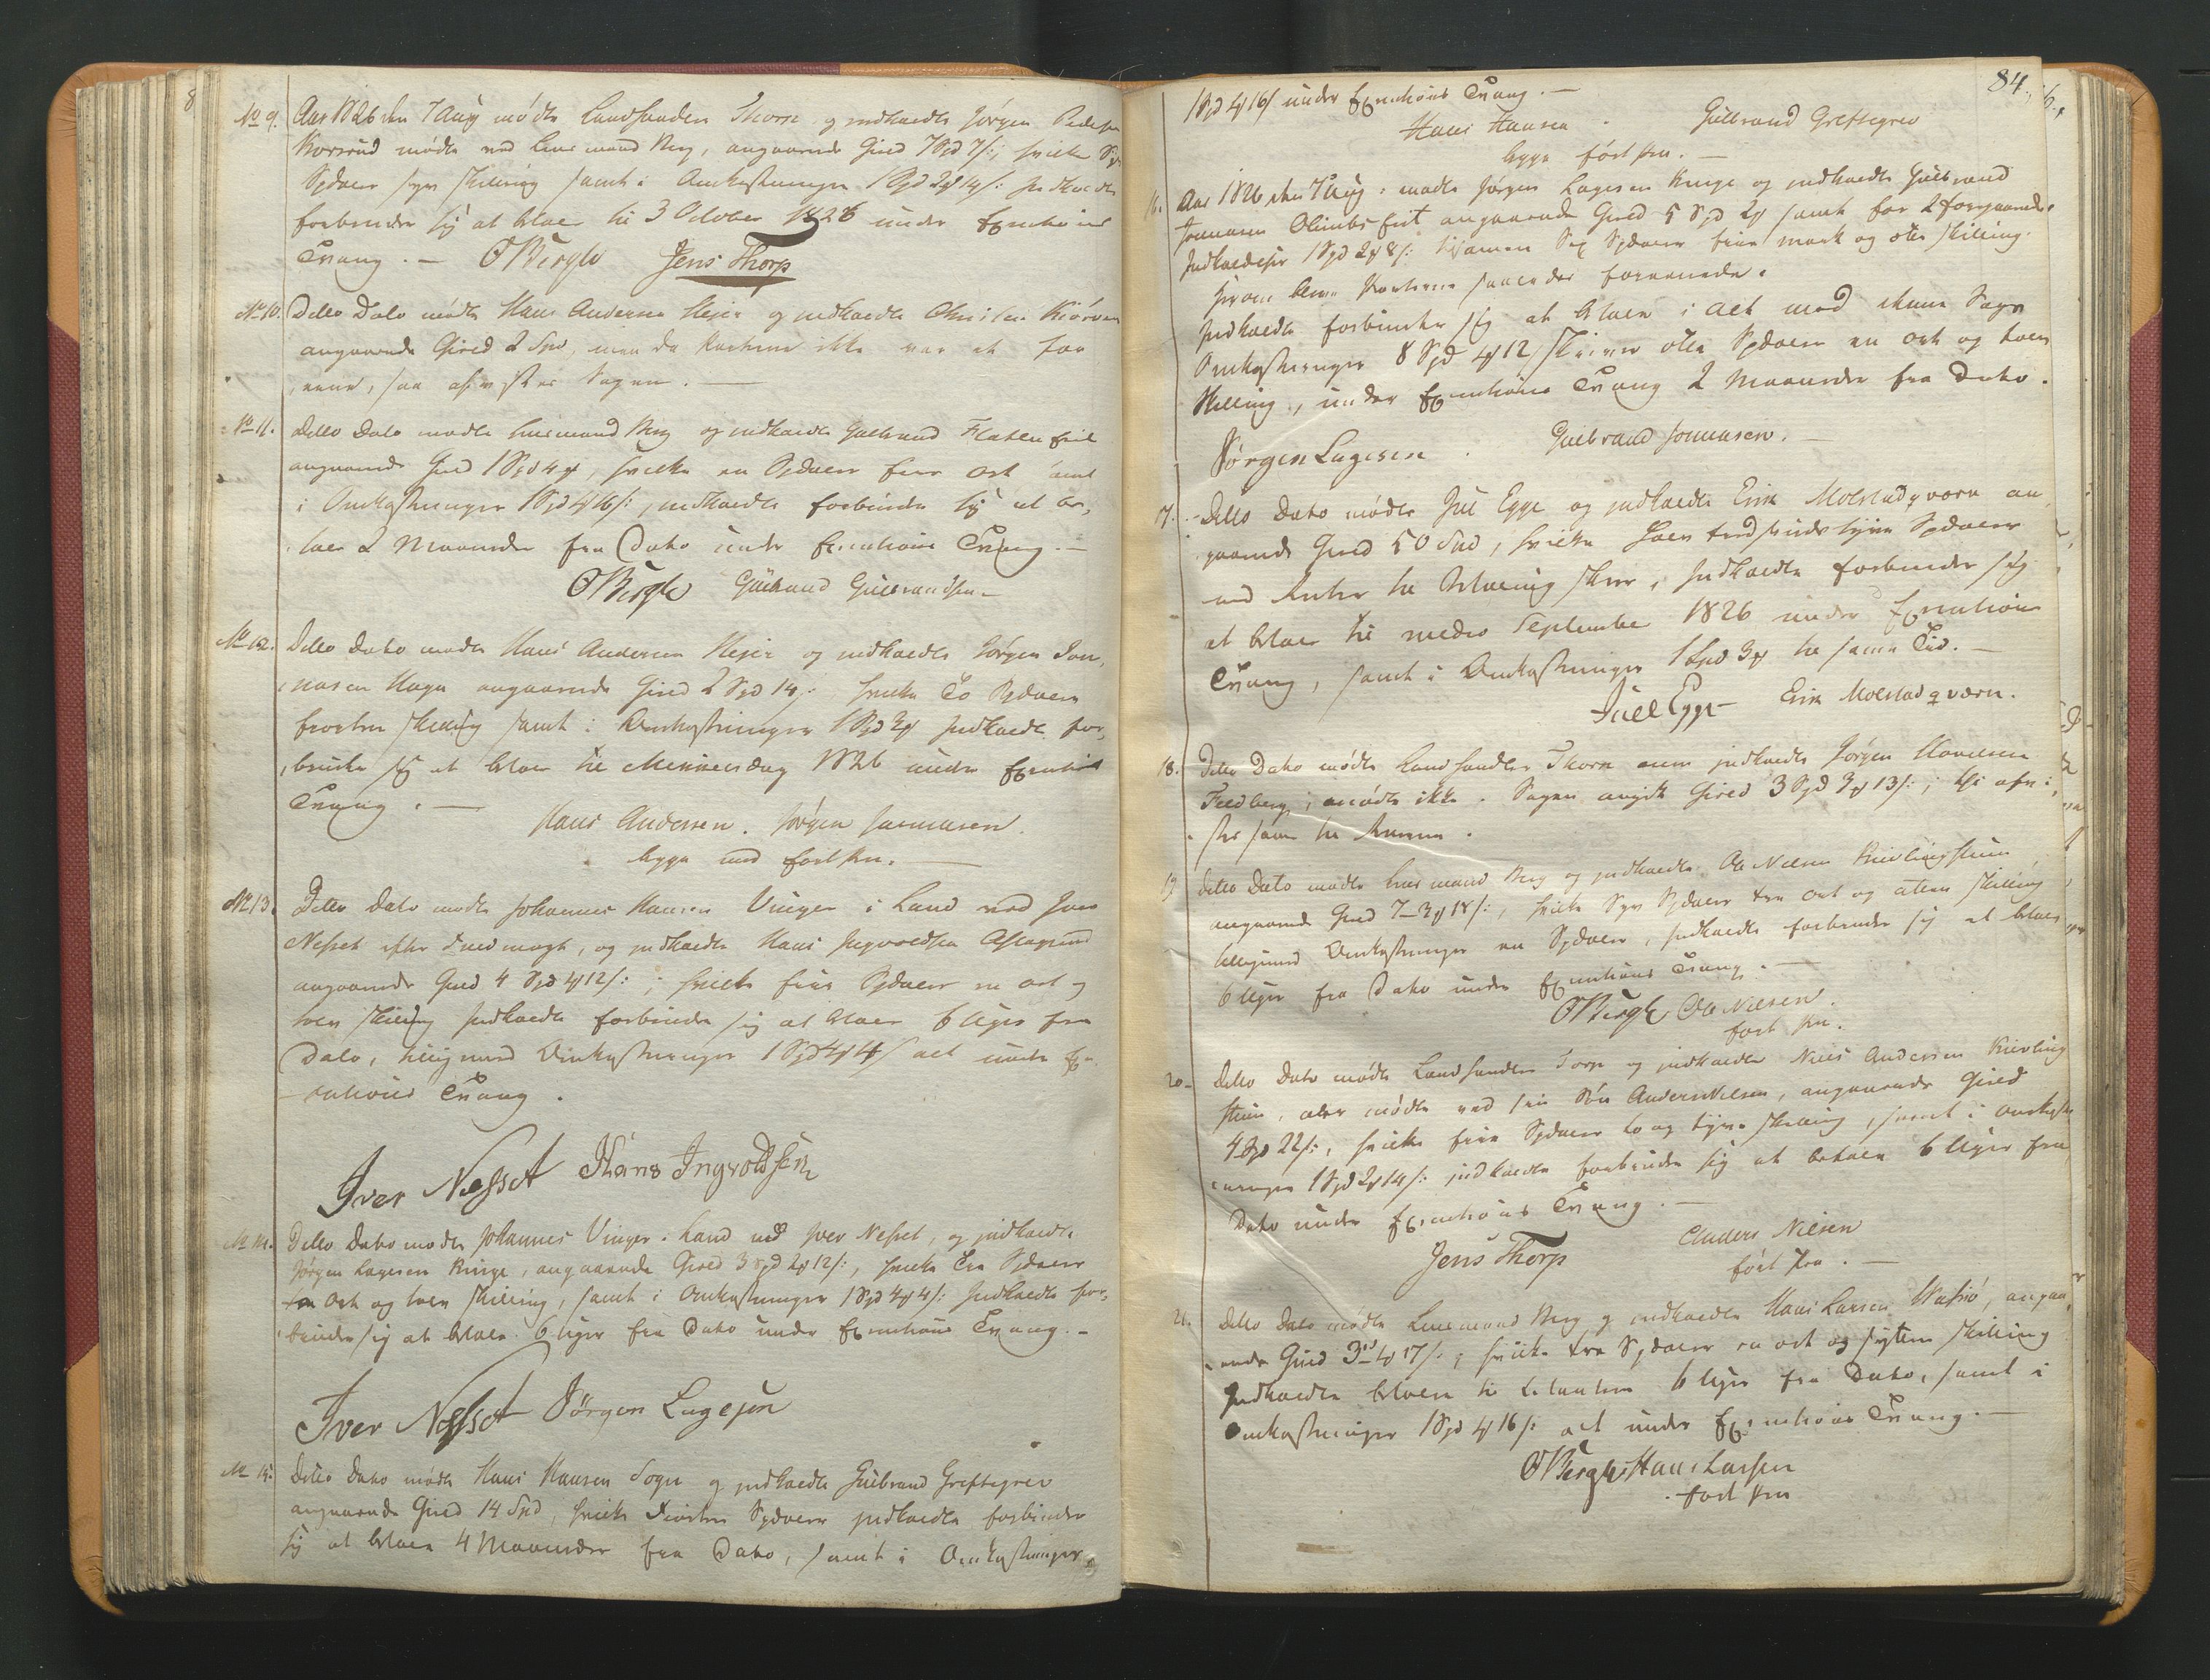 No 9. Aar 1826 den 7 Aug mødte Landhandler Thorp og indkaldte Jørgen Peders
Korsrud mødte ved Lensmand Berg, angaaende Gield 7 Spd 7 s:, hvilke Syv
Spdaler syv Skilling samt i Omkostninger 1 Spd 2 ort 14 s: Indkaldte
forbinder sig at betale til 3 October 1826 under Executions
Tvang. — OBergh Jens Thorp
No 10. Ditto Dato mødte Hans Andersen Hejer og indkaldte Christen
angaaende Gield 2 Spd, men da Parterne ikke var at for
ene, saa afvistes Sagen. —
No 11. Ditto Dato mødte Lensmand Berg og indkaldte Gulbrand Flatla Eie
angaaende Gield 1 Spd 4 ort, hvilke en Spdaler fire Ort samt
i Omkostninger 1 Spd 4 ort 16 s:, indkaldte forbinder sig at be,
tale 2 Maaneder fra Dato under Executions Tvang. —
OBergh Gulbrand Gulbrandsen —
No 12. Ditto Dato mødte Hans Andersen Hejer og indkaldte Jørgen Jon,
nasen Hagen angaaende Gield 2 Spd 14 s: hvilke To Spdaler
fiorten Skilling samt i Omkostninger 1 Spd 3 ort Indkaldte for,
binder sig at betale til Mikkelsdag 1826 under Execution
Tvang. — Hans Andersen. Jørgen Jonnasen.
begge med ført Pen. —
No 13. Ditto Dato mødte Johannes Hansen Vinger i Land ved Iver
Nesset efter Fuldmagt, og indkaldte Hans Ingvoldsen
angaaende Gield 4 Spd 1 ort 12 s: ; hvilke fire Spdaler en ort og
tolv Skilling Indkaldte forbinder sig at betale 6 Uger fra
Dato, tilligemed Omkostninger 1 Spd 4 ort 4 s alt under Ex-
ecutions Tvang.
Iver Nesset Hans Ingvoldsen
No 14. Ditto Dato mødte Johannes Vinger i Land ved Iver Nesset, og indkaldte
Jørgen Lagesen Ringe, angaaende Gield 3 Spd 2 ort 12 s:, hvilke Tre Spdaler
to Ort og tolv Skilling, samt i Omkostninger 1 Spd 4 ort 4 s: Indkaldte for,
binder sig at betale 6 Uger fra Dato under Executions Tvang. —
Iver Nesset Jørgen Lagesen
No 15. Ditto Dato mødte Hans Hansen Sogn og indkaldte Gulbrand Greftegrev
angaaende Gield 14 Spd, hvilke Fiorten Spdaler indkaldte forbinder
sig at betale 4 Maaneder fra Dato, samt i Omkostninger
84.
1 Spd 4 ort 16 s under Executions Tvang. —
Hans Hansen. Gulbrand Greftegrev
begge ført Pen. —
16. Aar 1826 den 7 Aug: mødte Jørgen Lagesen Ringe og indkaldte Gulbrand
Jonnasen angaaende Gield 5 Spd 2 ort samt for 2 foregaaende
Indkaldelser 1 Spd 2 ort 8 s: tilsamen Sex Spdaler fire mark og otte Skilling.
hvorom bleve Parterne saaledes forenede.
Indkaldte forbinder sig at betale i Alt med denne Sags
Omkostninger 8 Spd 1 ort 12 s skriver otte Spdaler en ort og tolv
Skilling, under Executions Tvang 2 Maaneder fra Dato.
Jørgen Lagesen. Gulbrand Jonnasen. —
17. Ditto Dato mødte Juel Egge og indkaldte Erik Molstadqværn an,
gaaende Gield 50 Spd, hvilke Halv tredsindstyve Spdaler
med Renter til Betaling skeer, Indkaldte forbinder sig
at betale til medio September 1826 under Executions
Tvang, samt i Omkostninger 1 Spd 3 ort til samme Tid. —
Juel Egge — Erik Molstadqværn.
18. Ditto Dato mødte Landhandler Thorp men indkaldte Jørgen
Feedberg, mødte ikke. Sagen angik Gield 3 Spd 3 ort 13 s:; thi afvi,
stes samme til Retten.
19 Ditto Dato mødte Lensmand Berg og indkaldte Ole Nielsen
angaaende Gield 7 — 3 ort 18 s:, hvilke Syv Spdaler tre ort og atten Skilling
tilligemed Omkostninger en Spdaler, Indkaldte forbinder sig at betale
6 Uger fra Dato under Executions Tvang. —
OBergh Ole Nielsen.
ført Pen.
20 — Ditto Dato mødte Landhandler Torp og indkaldte Niels Andersen
stuen, eller mødte ved sin Søn Anders Nielsen, angaaende Gield
4 Spd 22 s:, hvilke fire Spdaler to og tyve Skilling, samt i Omkost
ninger 1 Spd 2 ort 14 s: indkaldte forbinder sig at betale 6 Uger fra
Dato under Executions Tvang. —
Jens Thorp Anders Nielsen
ført Pen. —
21. Ditto Dato mødte Lensmand Berg og indkaldte Hans Larsen, angaa,
ende Gield 3 — 1 ort 17 s:; hvilke tre Spdaler en ort og sytten Skilling
Indkaldte betaler til Citanten 6 Uger fra Dato, samt i
Omkostninger 1 Spd 4 ort 16 s: alt under Executions Tvang. —
OBergh Hans Larsen
ført Pen